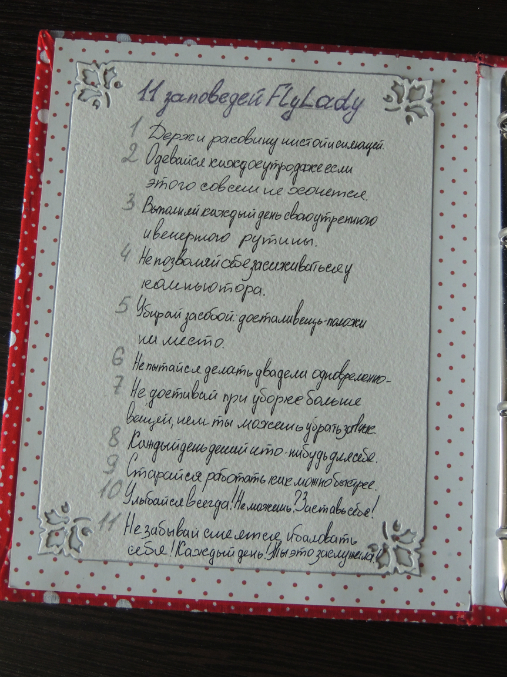 11 заповедей FlyLady
1 Держи раковину чистой и сияющей.
2 Одевайся каждое утро даже если
этого совсем не хочется.
3 Выполняй каждый день свою утреннюю
и вечернюю рутины.
4 Не позволяй себе засиживаться у
компьютора.
5 Убирай за собой: достал вещь - положи
на место
6 Не пытайся делать два дела одновременно.
7 Не доставай при уборке больше
вещей, чем ты можешь убрать за
8 Каждый день делай что-нибудь для себя.
9 Старайся работать как можно быстрее.
10 Улыбайся всегда! Не можешь? Заставь себя!
11 Не забывай смеяться, и баловать
себя! Каждый день! Ты это заслужила!